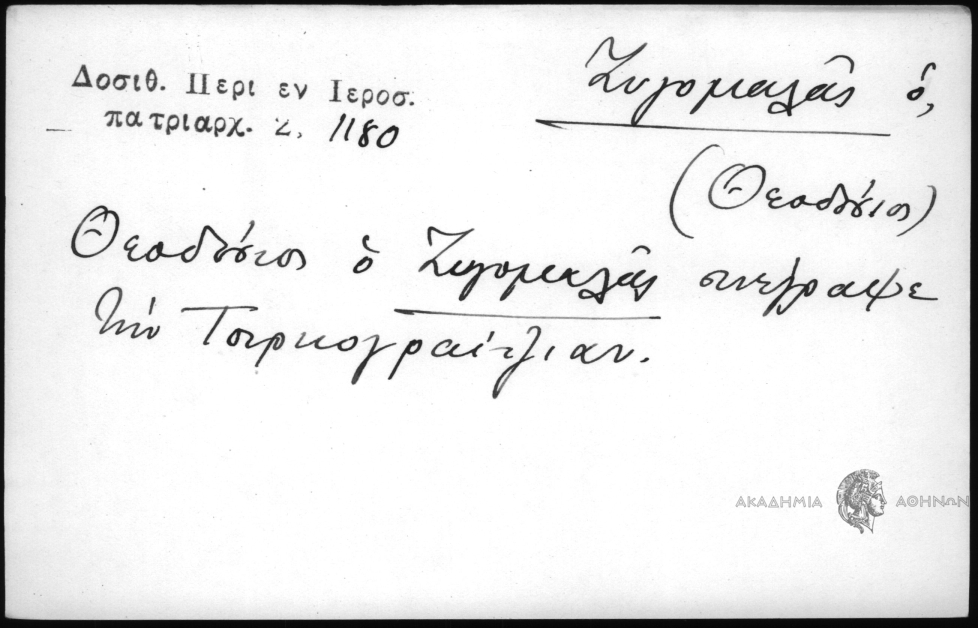 Δοσιθ. Περι εν Ιεροσ.
πατριαρχ. Σ, 1180
Ζυγομαλᾶς ὁ,
(Θεοδόσιος)
Θεοδόσιος ὁ Ζυγομαλᾶς συνέγραψε
τὴν Τουρκογραίτζιαν.
ΑΚΑΔΗΜΙΑ ΑΘΗΝΩΝ